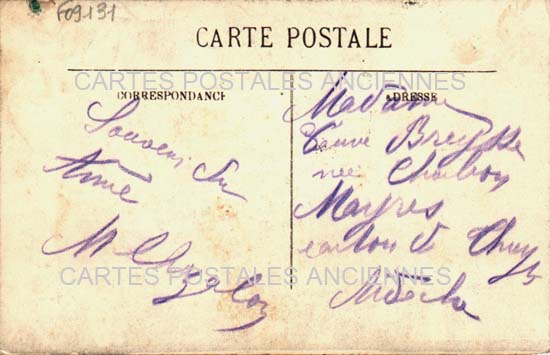 F09131
CARTE POSTALE
CARTES POSTALES ANCIENNES
CORRESPONDANCE
ADRESSE
Souvenir du
Amie
M
Madame
Veuve Breysse
née
Mayres
canton de
Ardèche
CARTES POSTALES ANCIENNES